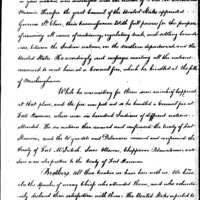 Massie Therefor the great council of the United States appointed
Governor St. Clair, their commissioner with full power, for the purpose
of removing all causes of controversy, regulating trade, and settling boundar-
ies, between the Indian nations, in the Northern department, and the
United States. He accordingly sent messages inviting all the nations
concerned to meet him at a Council fire, which he kindled at the falls
of Muskingham.
While he was waiting for them some mischief happened
at that place, and the fire was put out so he kindled a Council fire at
Fort Harmar, where near six hundred Indians of different nations
attended. The six Nations then renewed and confirmed the treaty of Fort
Stanwix, and the Wyandots and Delawares renewed and confirmed the
treaty of Fort McIntosh. Some Ottawas, Chippewas, Pattawatimies, and
Sacs were also parties to the treaty of Fort Harmar.
Brothers, All these treaties we have here with us. We have
also the speeches of many Chiefs who attended them, and who volunta-
rily declared their satisfaction with them. The United States